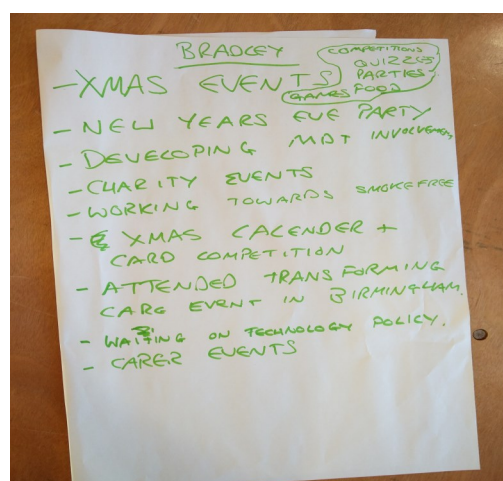 BRADLEY
- XMAS EVENTS
COMPETITIONS
QUIZZES
PARTIES
GAMES FOOD
- NEW YEARS EVE PARTY
- DEVELOPING MDT INVOLVEMENT
- CHARITY EVENTS
- WORKING TOWARDS SMOKEFREE
- XMAS CALENDER +
CARD COMPETITION
- ATTENDED TRANSFORMING
CARE EVENT IN BIRMINGHAM.
- WAITING ON TECHNOLOGY POLICY.
- CARER EVENTS